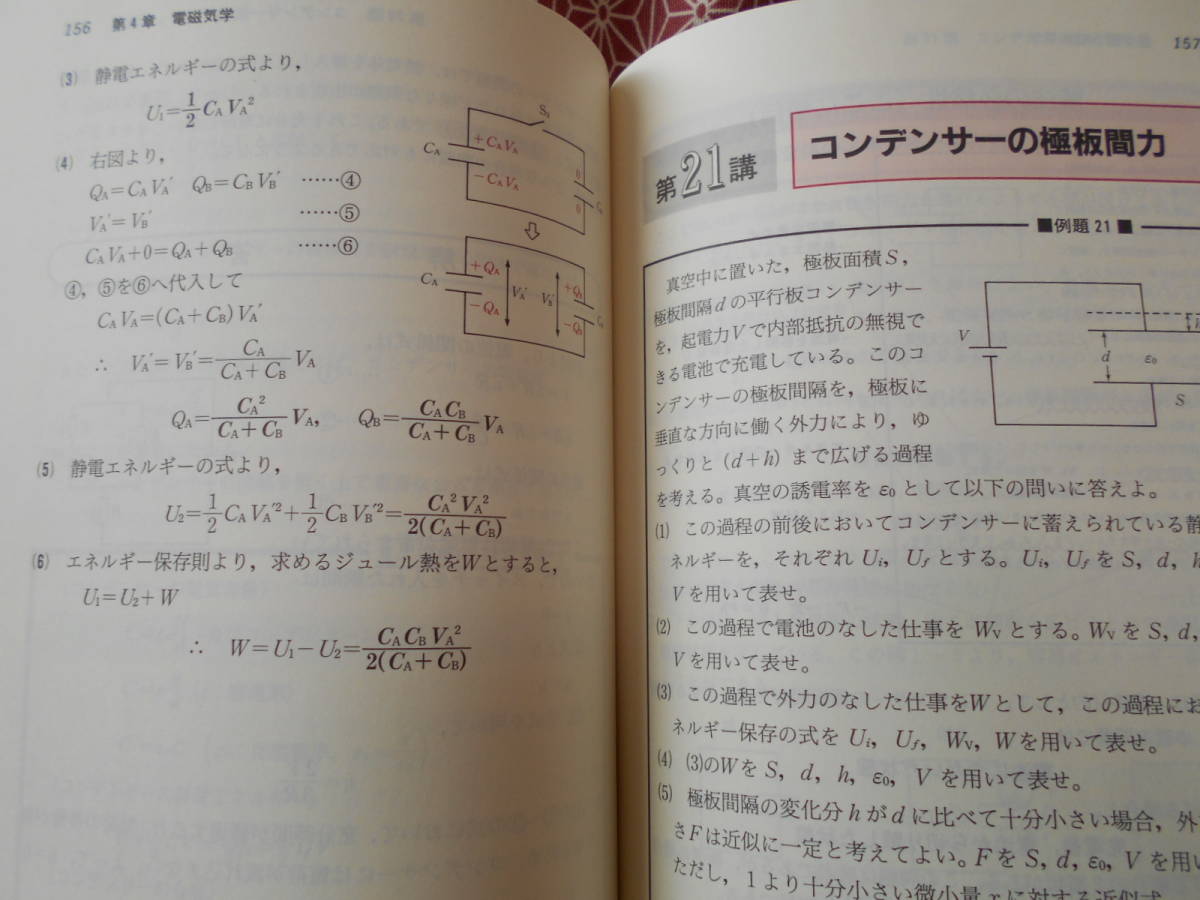 156 第4章 電磁気学
(3) 静電エネルギーの式より,
U₁=1/2 C_A V_A²
(4) 右図より,
Q_A=C_A V_A′ Q_B=C_B V_B′ ……④
V_A′=V_B′ ……⑤
C_A V_A+0=Q_A+Q_B ……⑥
④, ⑤を⑥へ代入して
C_A V_A=(C_A+C_B)V_A′
∴ V_A′=V_B′=C_A/(C_A+C_B) V_A
Q_A=C_A²/(C_A+C_B) V_A, Q_B=C_A C_B/(C_A+C_B) V_A
(5) 静電エネルギーの式より,
U₂=1/2 C_A V_A′²+1/2 C_B V_B′²=C_A² V_A²/2(C_A+C_B)
(6) エネルギー保存則より, 求めるジュール熱をWとすると,
U₁=U₂+W
∴ W=U₁−U₂=C_A C_B V_A²/2(C_A+C_B)
C_A
+C_A V_A
−C_A V_A
0
0
C_A
+Q_A
−Q_A
V_A′
V_B′
157
第21講
コンデンサーの極板間力
■例題 21■
真空中に置いた, 極板面積S,
極板間隔dの平行板コンデンサー
を, 起電力Vで内部抵抗の無視で
きる電池で充電している。このコ
ンデンサーの極板間隔を, 極板に
垂直な方向に働く外力により, ゆ
っくりと (d+h) まで広げる過程
を考える。真空の誘電率を ε₀として以下の問いに答えよ。
V
d
ε₀
S
(1) この過程の前後においてコンデンサーに蓄えられている静
ネルギーを, それぞれ Uᵢ, U_f とする。Uᵢ, U_f を S, d, h
Vを用いて表せ。
(2) この過程で電池のなした仕事を W_V とする。W_V を S, d,
Vを用いて表せ。
(3) この過程で外力のなした仕事をWとして, この過程にお
ネルギー保存の式を Uᵢ, U_f, W_V, Wを用いて表せ。
(4) (3)のWを S, d, h, ε₀, V を用いて表せ。
(5) 極板間隔の変化分hがdに比べて十分小さい場合, 外
さFは近似に一定と考えてよい。Fを S, d, ε₀, V を用い
ただし, 1より十分小さい微小量xに対する近似式